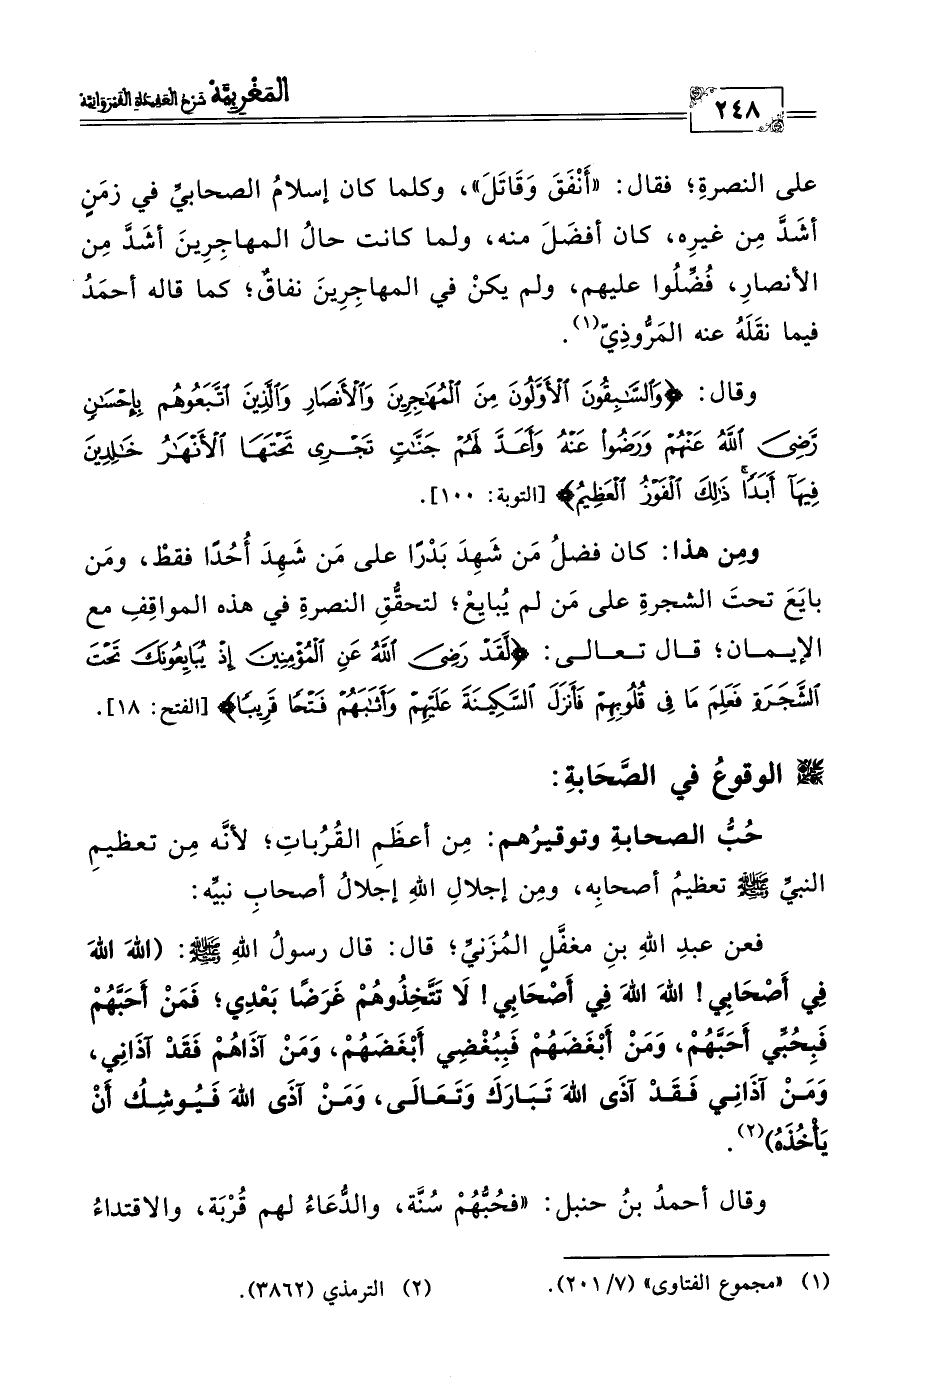 المَغْرِبِيَّة شَرْحُ العَقِيدَةِ القَيْرَوَانِيَّة
٢٤٨
على النصرةِ؛ فقال: «أَنْفَقَ وَقَاتَلَ»، وكلما كان إسلامُ الصحابيِّ في زمَنٍ
أشَدَّ مِن غيرِه، كان أفضَلَ منه، ولما كانت حالُ المهاجِرِينَ أشَدَّ مِن
الأنصارِ، فُضِّلُوا عليهم، ولم يكنْ في المهاجِرِينَ نفاقٌ؛ كما قاله أحمَدُ
فيما نقَلَهُ عنه المَرُّوذِيّ(١).
وقال: ﴿وَٱلسَّٰبِقُونَ ٱلْأَوَّلُونَ مِنَ ٱلْمُهَٰجِرِينَ وَٱلْأَنصَارِ وَٱلَّذِينَ ٱتَّبَعُوهُم بِإِحْسَٰنٍ
رَّضِىَ ٱللَّهُ عَنْهُمْ وَرَضُوا۟ عَنْهُ وَأَعَدَّ لَهُمْ جَنَّٰتٍ تَجْرِى تَحْتَهَا ٱلْأَنْهَٰرُ خَٰلِدِينَ
فِيهَآ أَبَدًا ۚ ذَٰلِكَ ٱلْفَوْزُ ٱلْعَظِيمُ﴾ [التوبة: ١٠٠].
ومِن هذا: كان فضلُ مَن شَهِدَ بَدْرًا على مَن شَهِدَ أُحُدًا فقطْ، ومَن
بايَعَ تحتَ الشجرةِ على مَن لم يُبايِعْ؛ لتحقُّقِ النصرةِ في هذه المواقِفِ مع
الإيـمـان؛ قـال تـعـالـى: ﴿لَّقَدْ رَضِىَ ٱللَّهُ عَنِ ٱلْمُؤْمِنِينَ إِذْ يُبَايِعُونَكَ تَحْتَ
ٱلشَّجَرَةِ فَعَلِمَ مَا فِى قُلُوبِهِمْ فَأَنزَلَ ٱلسَّكِينَةَ عَلَيْهِمْ وَأَثَٰبَهُمْ فَتْحًا قَرِيبًا﴾ [الفتح: ١٨].
الوقوعُ في الصَّحَابةِ:
حُبُّ الصحابةِ وتوقيرُهم: مِن أعظَمِ القُرُباتِ؛ لأنَّه مِن تعظيمِ
النبيِّ ﷺ تعظيمُ أصحابِه، ومِن إجلالِ اللهِ إجلالُ أصحابِ نبيِّه:
فعن عبدِ اللهِ بنِ مغفَّلٍ المُزَنيِّ؛ قال: قال رسولُ اللهِ ﷺ: (اللهَ اللهَ
فِي أَصْحَابِي! اللهَ اللهَ فِي أَصْحَابِي! لَا تَتَّخِذُوهُمْ غَرَضًا بَعْدِي؛ فَمَنْ أَحَبَّهُمْ
فَبِحُبِّي أَحَبَّهُمْ، وَمَنْ أَبْغَضَهُمْ فَبِبُغْضِي أَبْغَضَهُمْ، وَمَنْ آذَاهُمْ فَقَدْ آذَانِي،
وَمَـنْ آذَانِـي فَـقَـدْ آذَى اللهَ تَـبَـارَكَ وَتَـعَـالَـى، وَمَـنْ آذَى اللهَ فَـيُـوشِـكُ أَنْ
يَأْخُذَهُ)(٢).
وقال أحمدُ بنُ حنبل: «فحُبُّهُمْ سُنَّة، والدُّعَاءُ لهم قُرْبَة، والاقتداءُ
(١) «مجموع الفتاوى» (٢٠١/٧).
(٢) الترمذي (٣٨٦٢).